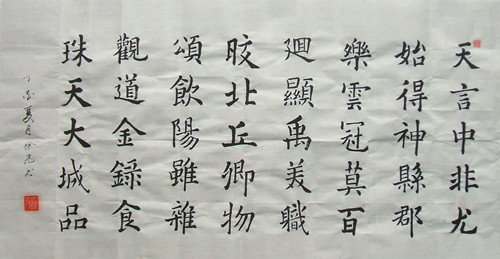 天言中非尤
始得神縣郡
樂雲冠莫百
廻顯禹美職
皎北丘卿物
頌飲陽雖雜
觀道金録食
珠天大城品